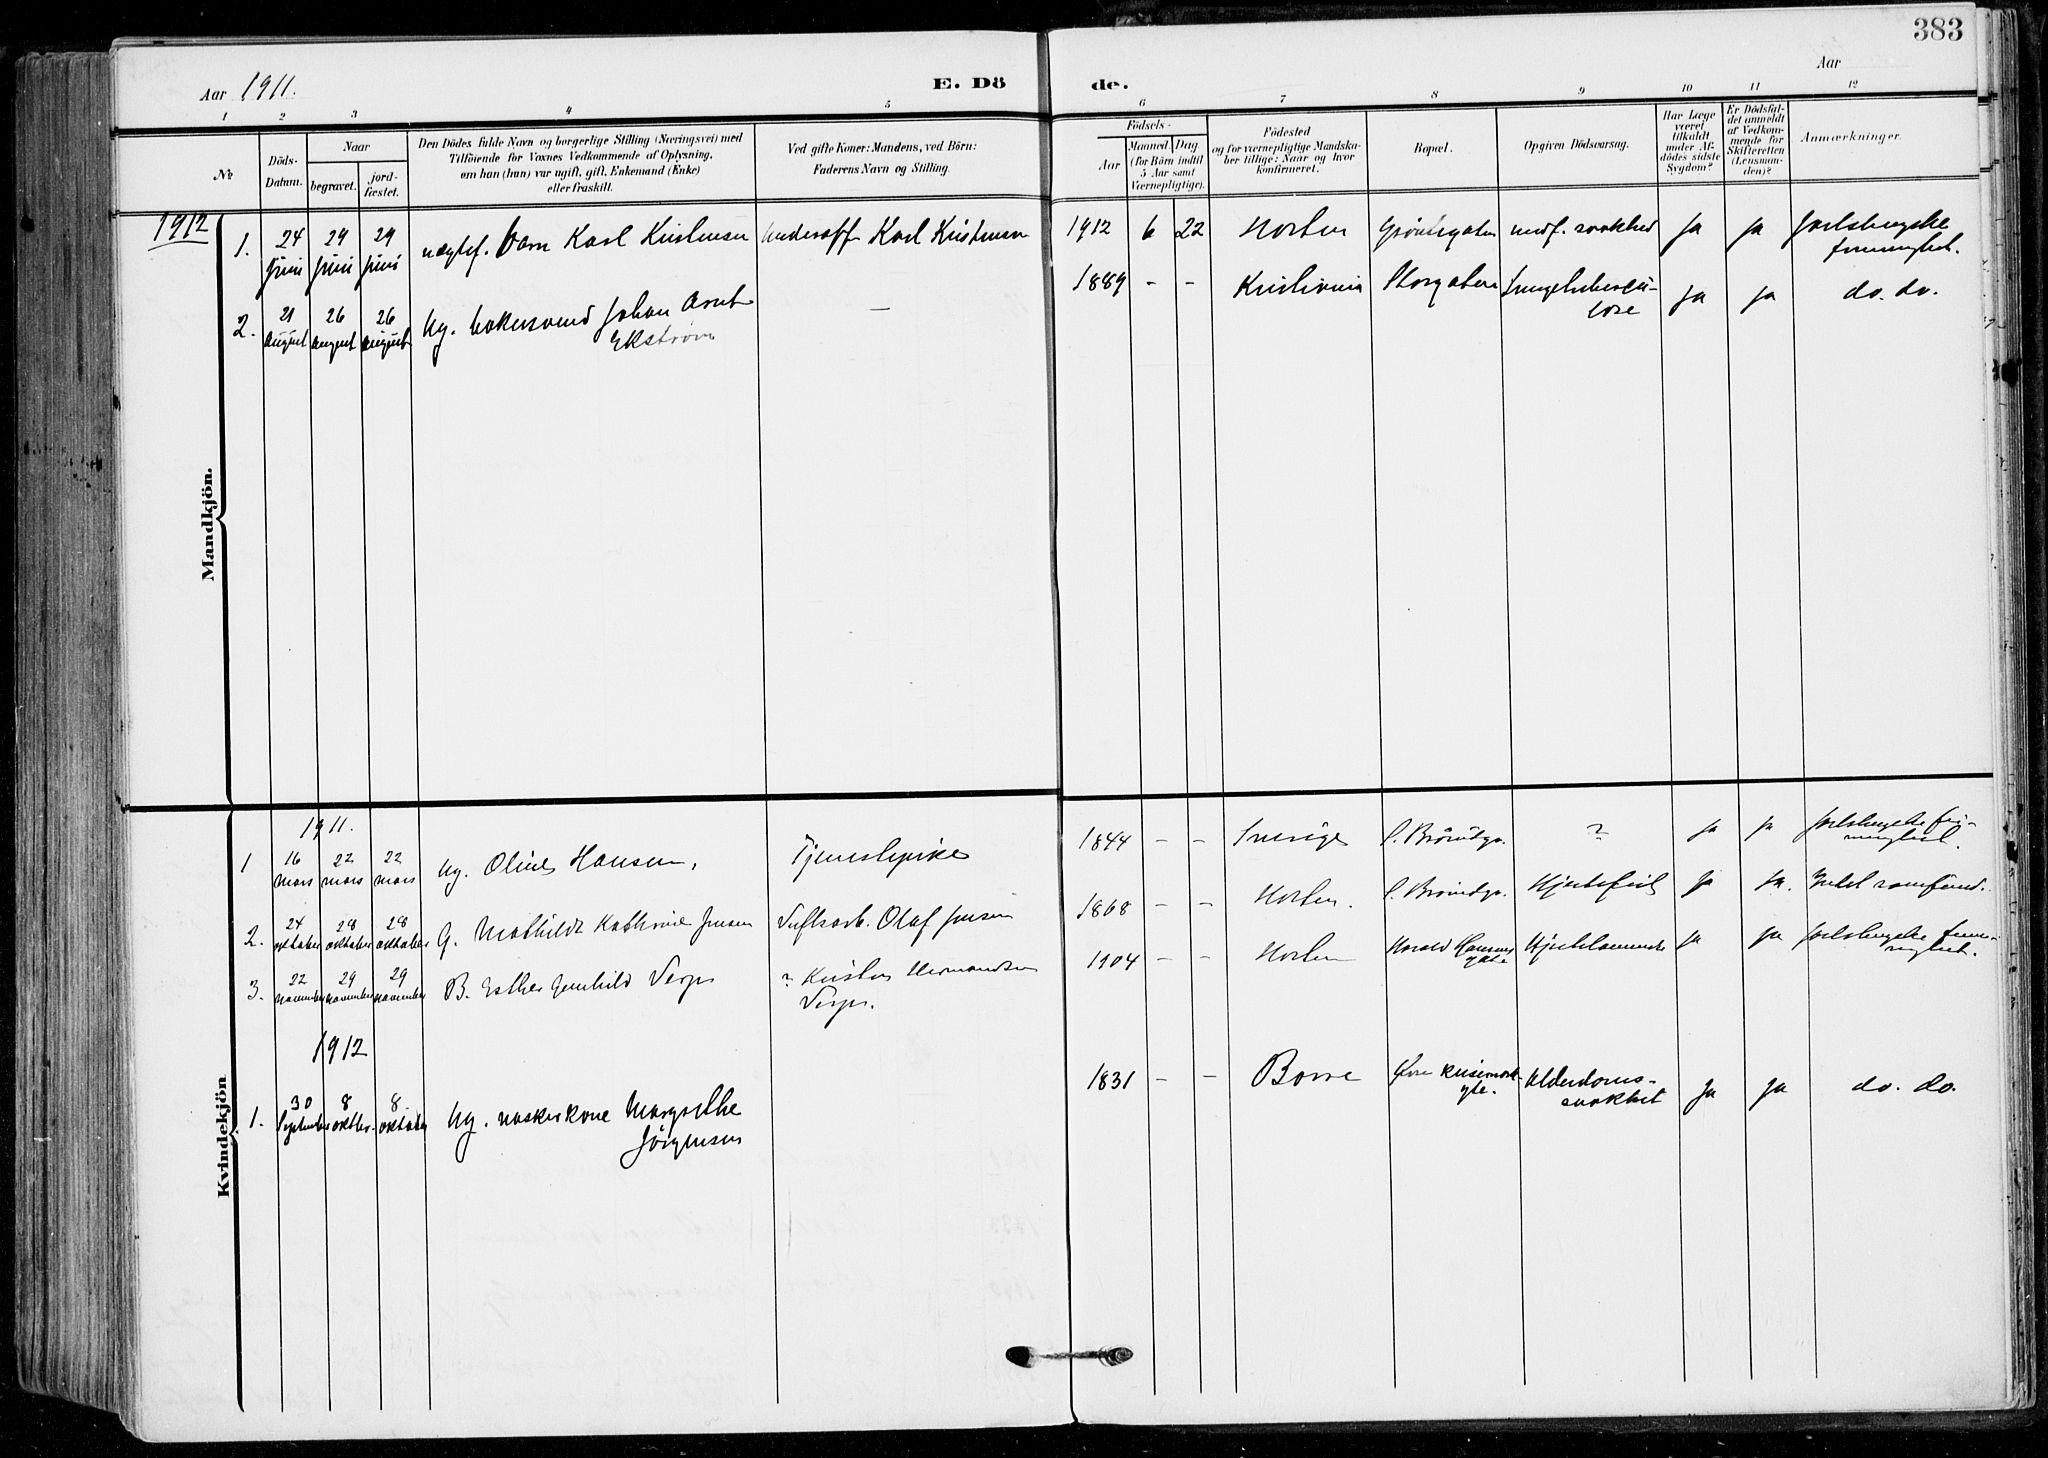 383
Aar 1911.
E. Dö
de.
Aar
1 2 3 4 5 6 7 8 9 10 11 12
№
Döds-
Datum.
Naar
begravet.
jord-
fæstet.
Den Dödes fulde Navn og borgerlige Stilling (Næringsvei) med
Tilföiende for Voxnes Vedkommende af Oplysning,
om han (hun) var ugift, gift, Enkemand (Enke)
eller fraskilt.
Ved gifte Koner: Mandens, ved Börn:
Faderens Navn og Stilling.
Födsels-
Aar
Maaned.
Dag
(for Börn indtil
5 Aar samt
Værnepligtige).
Födested
og for værnepligtige Mandska-
ber tillige: Naar og hvor
konfirmeret.
Bopæl.
Opgiven Dödsaarsag.
Har Læge
været
tilkaldt
under Af-
dödes sidste
Sygdom?
Er Dödsfal-
det anmeldt
af Vedkom-
mende for
Skifteretten
(Lensman-
den)?
Anmærkninger.
Mandkjön.
1912
1. 24 juni 29 juni 29 juni barn Karl Kristensen Underoff Karl Kristensen 1912 6 22 Horten medf. svakhed Ja Ja Jarlsbergske
2. 21 august 26 august 26 august Ug. Johan Arnt — 1889 - - Kristiania Storgaten Lungetubercu- Ja Ja do. do.
Ekström lose
Kvindekjön
1911.
1 16 mars 22 mars 22 mars Ug. Oline Hansen, Tjenestepike 1844 - - Sverige ? Ja Ja Jarlsbergske
2. 24 oktober 28 oktober 28 oktober G. Mathilde Kathrine Jensen Olaf Jensen 1868 - - Horten. Hjertefeil Ja Ja.
3. 22 november 29 november 29 november B. Esther 1904 - - Horten Harald Ja Ja Jarlsbergske
1912
1. 30 September 8 oktbr. 8 oktober Ug. vaskerkone Margrethe 1831 - - Borre Övre Alderdoms- Ja Ja do. do.
Jörgensen gte. svakhet